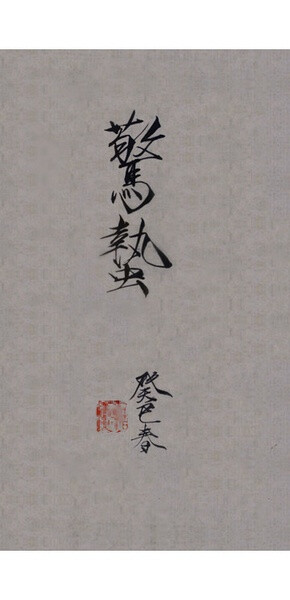 驚蟄
癸巳春